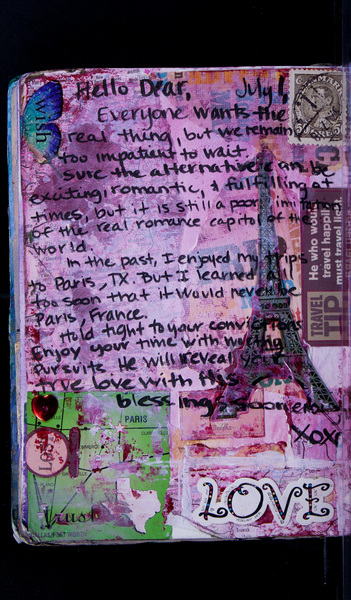 Hello Dear, July 1,
wish
Everyone wants the
real thing, but we remain
too impatient to wait.
Sure the alternative can be
exciting, romantic, & fulfilling at
times, but it is still a poor imitation
of the real romance capitol of the
world.
In the past, I enjoyed my trips
to Paris, TX. But I learned all
too soon that it would never be
Paris, France.
Hold tight to your convictions
Enjoy your time with
pursuits. He will reveal your
true love with His
blessing soon
XOX
He who would
travel happily
must travel light.
TRAVEL
TIP
PARIS
trust
LOVE